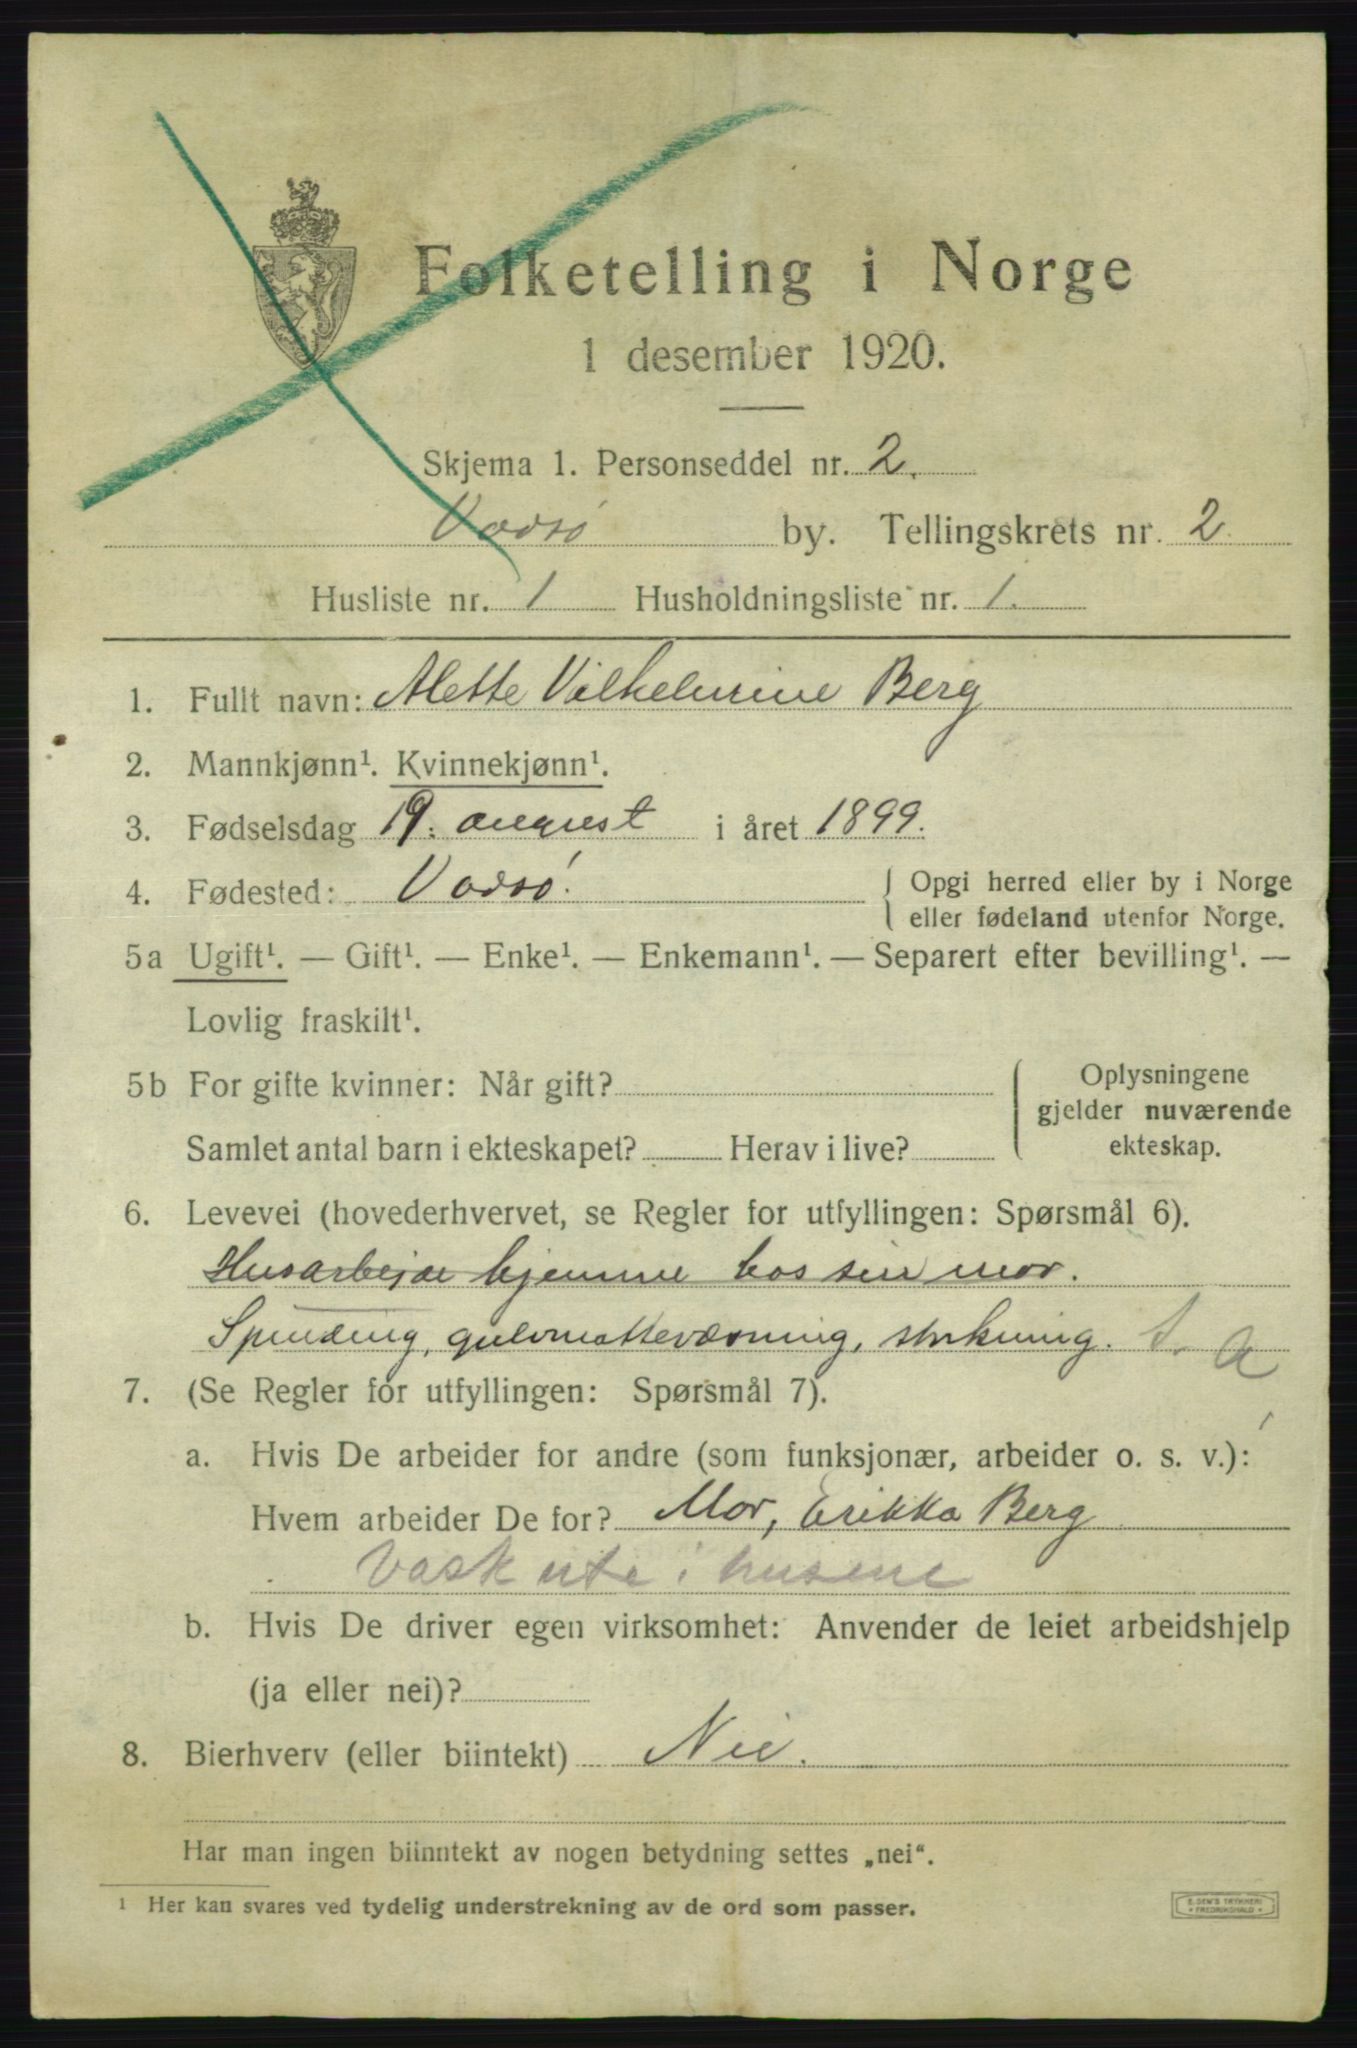 Folketelling i Norge
1 desember 1920.
Skjema 1. Personseddel nr. 2.
Vadsø by. Tellingskrets nr. 2.
Husliste nr. 1 Husholdningsliste nr. 1.
1. Fullt navn: Alette Vilhelmine Berg
2. Mannkjønn¹. Kvinnekjønn¹.
3. Fødselsdag 19. august i året 1899.
4. Fødested: Vadsø. Opgi herred eller by i Norge
eller fødeland utenfor Norge.
5a Ugift¹. — Gift¹. — Enke¹. — Enkemann¹. — Separert efter bevilling¹. —
Lovlig fraskilt¹.
5b For gifte kvinner: Når gift? Oplysningene
gjelder nuværende
Samlet antal barn i ekteskapet? Herav i live? ekteskap.
6. Levevei (hovederhvervet, se Regler for utfyllingen: Spørsmål 6).
Husarbejde hjemme hos sin mor.
Spinding, gulvmattevævning, strikning.
7. (Se Regler for utfyllingen: Spørsmål 7).
a. Hvis De arbeider for andre (som funksjonær, arbeider o. s. v.):
Hvem arbeider De for? Mor, Erikka Berg
Vask ute i husene
b. Hvis De driver egen virksomhet: Anvender de leiet arbeidshjelp
(ja eller nei)?
8. Bierhverv (eller biintekt) Nei.
Har man ingen biinntekt av nogen betydning settes „nei“.
1 Her kan svares ved tydelig understrekning av de ord som passer.
E. SEM'S TRYKKERI
• FREDRIKSHALD •